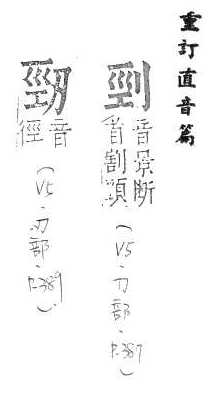 重訂直音篇
剄
音景断
首割頸
(V5、刀部、P.387)
音
徑
(V5、刃部、P.389)